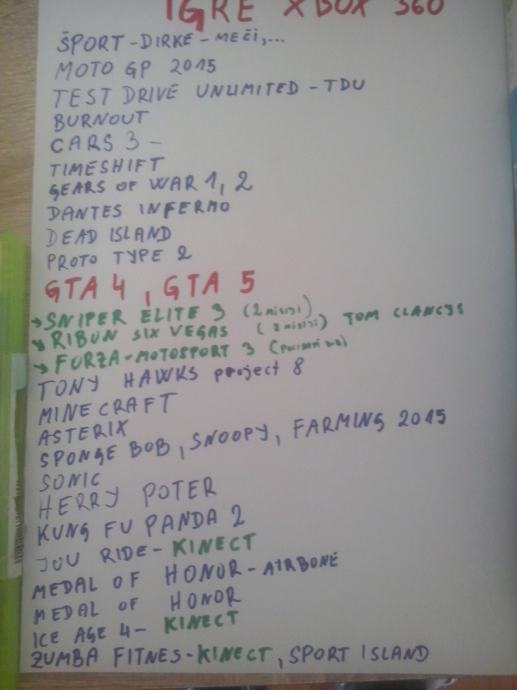 IGRE XBOX 360
ŠPORT - DIRKE - MEČI,...
MOTO GP 2015
TEST DRIVE UNLIMITED - TDU
BURNOUT
CARS 3 -
TIMESHIFT
GEARS OF WAR 1, 2
DANTES INFERMO
DEAD ISLAND
PROTO TYPE 2
GTA 4, GTA 5
→ SNIPER ELITE 3 (2 misiji)
→ RIBON SIX VEGAS (2 misiji) TOM CLANCYS
→ FORZA - MOTOSPORT 3
TONY HAWKS project 8
MINECRAFT
ASTERIX
SPONGE BOB, SNOOPY, FARMING 2015
SONIC
HERRY POTER
KUNG FU PANDA 2
JOU RIDE - KINECT
MEDAL OF HONOR - AIRBONE
MEDAL OF HONOR
ICE AGE 4 - KINECT
ZUMBA FITNES - KINECT, SPORT ISLAND